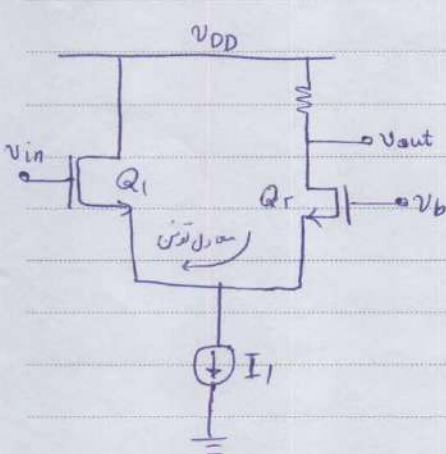 VDD
vin
Q۱
Q۲
vout
vb
معادل تونن
I1